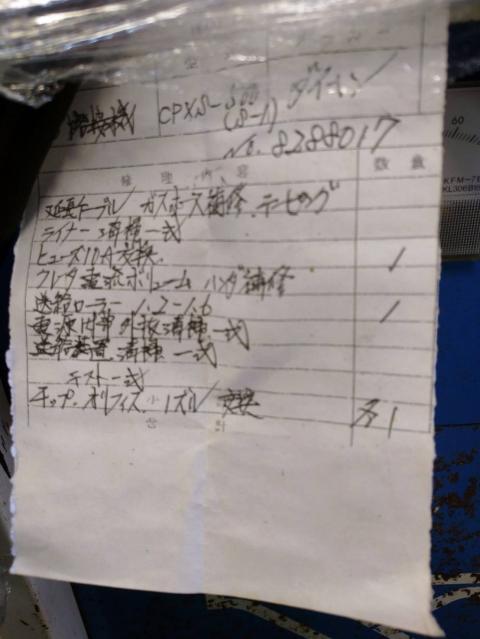 型
溶接機 CPXS-500 ダイヘン
(S-1)
No. 8288017
修理内容 数量
延長ケーブル ガスホース補修、テーピング
ライナー清掃一式
ヒューズ10A交換 1
クレータ電流ボリューム ハンダ補修
送給ローラー 1.2-1.6 1
電源内部外板清掃一式
送給装置清掃一式
テスト一式
チップ、オリフィス、ノズル 交換 各1
小
合計
60
KFM-7
KL306B